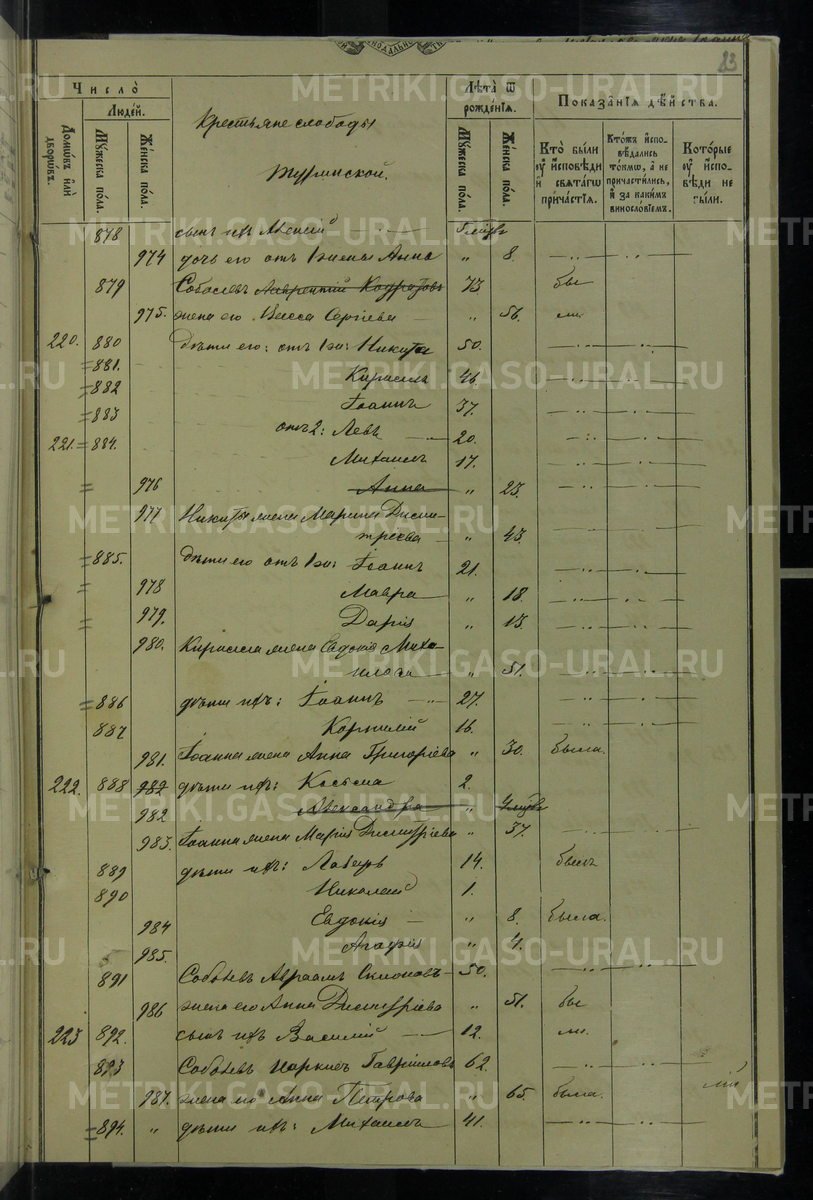 23
Число̀
Люде́й.
Домѡ́въ и҆лѝ дворѡ́въ.
Мꙋ́жеска по́ла.
Же́нска по́ла.
Крестьяне слободы
Туринской.
Лѣ́та ѿ рожде́нїѧ.
Мꙋ́жеска по́ла.
Же́нска по́ла.
Показа̑нїѧ дѣ́йства.
Кто̀ бы́ли ᲂу҆ и҆сповѣ́ди и҆ свѧта́гѡ прича́стїѧ.
Кто́жъ и҆сповѣ́дались то́кмѡ, а҆ не причасти́лись, и҆ за каки́мъ винослові́емъ.
Кото́рые ᲂу҆ и҆сповѣ́ди не бы́ли.
878 сынъ ихъ Алексій
974 дочь его отъ 1 жены Анна " 8
879 Соболевъ Лаврентій Кодратовъ 73 бы
975. жена его Васса Сергіева " 56. ли
220. 880 дѣти его: отъ 1ой: Никита 50.
881. Кириллъ 46
882 Іоаннъ 37.
883 отъ 2: Левъ 20.
221. 884. Михаилъ 17.
976 Анна " 23.
977 Никиты жена Марина Дими-
тріева " 43.
885. дѣти его отъ 1ой: Іоаннъ 21.
978 Мавра " 18.
979. Дарія " 13.
980. Кирилла жена Евдокія Миха-
илова " 51.
886 дѣти ихъ: Іоаннъ 27.
887 Корнилій 16.
981. Іоанна жена Анна Григоріева " 30. была.
222. 888 982 дѣти ихъ: Косьма 2.
982 Александра "
983. Іоанна жена Марія Димитріева " 37.
889 дѣти ихъ: Лазарь 14. былъ
890 Николай 1.
984 Евдокія " 8. была.
985. Агафія " 4.
891 Соболевъ Авраамъ 50.
986 жена его Анна Димитріева " 51. бы
223 892. сынъ ихъ Василій 12. ли.
893 Соболевъ Наркисъ Гавріиловъ 62.
987. жена его Анна Петрова " 65. была.
894. " дѣти ихъ: Михаилъ 41.
METRIKI.GASO-URAL.RU